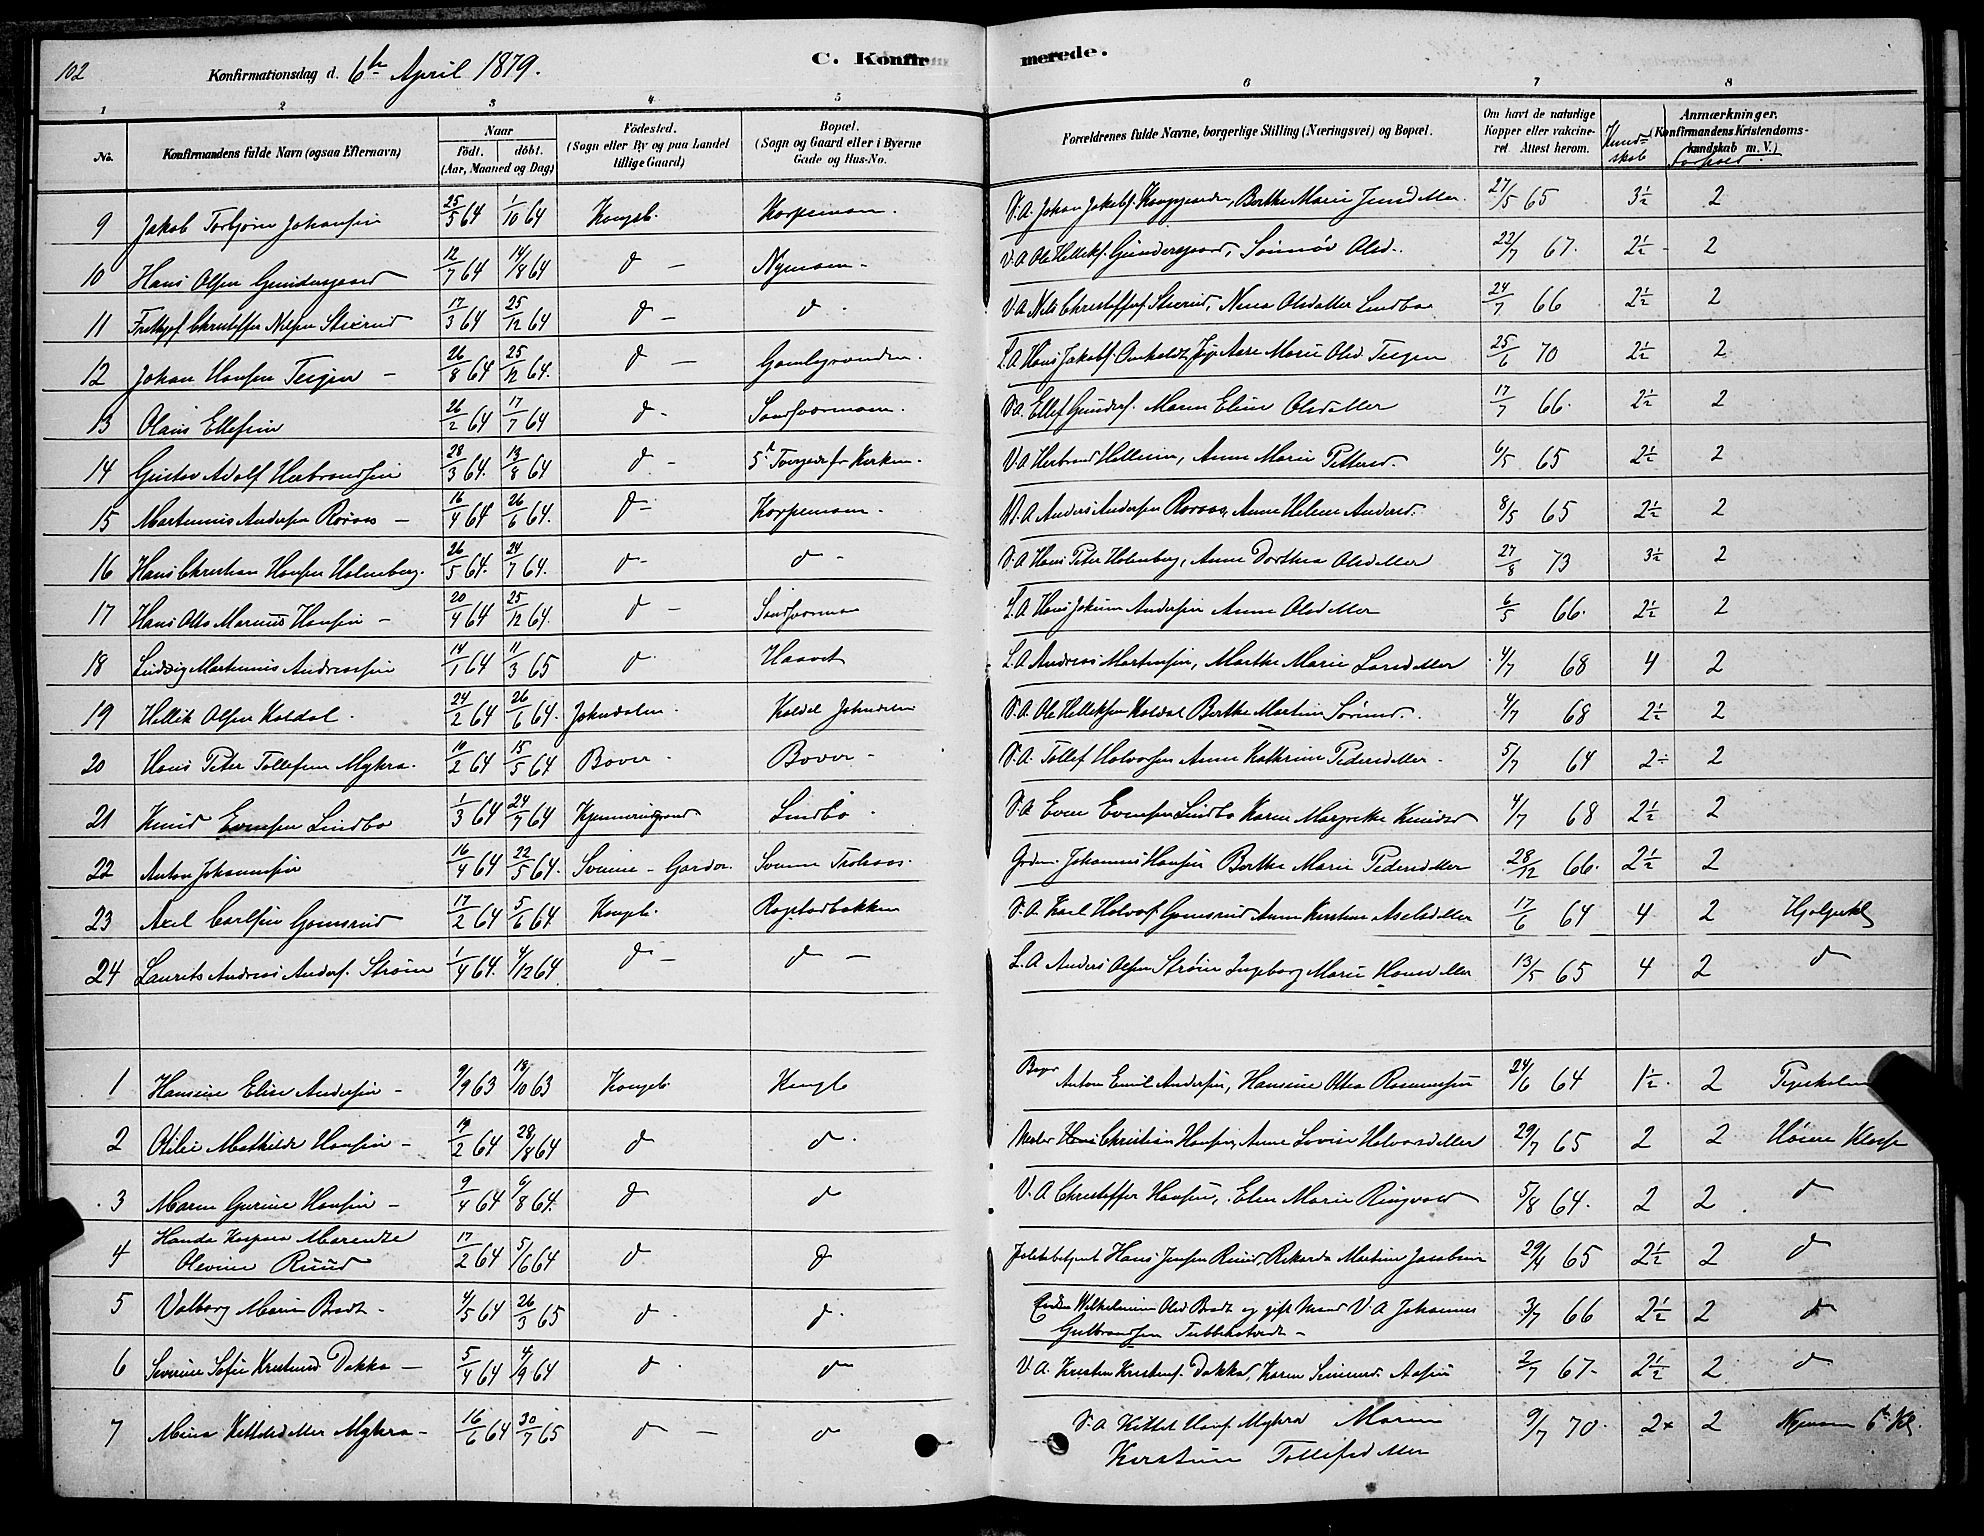 102
Konfirmationsdag d. 6te April 1879.
C. Konfirmerede.
1 2 3 4 5 6 7 8
No.
Konfirmandens fulde Navn (ogsaa Efternavn)
Naar
födt. döbt.
(Aar, Maaned og Dag)
Födested.
(Sogn eller By og paa Landet
tillige Gaard)
Bopæl.
(Sogn og Gaard eller i Byerne
Gade og Hus-No.
Forældrenes fulde Navne, borgerlige Stilling (Næringsvei) og Bopæl.
Om havt de naturlige
Kopper eller vakcine-
ret. Attest herom.
Kund-
skab
Anmærkninger,
(Konfirmandens Kristendoms-
kundskab m. V.)
Forhold.
9 Jakob Torbjørn Johansen 25/5 64 1/10 64 Kongsb. Korpemoen. V.A. Johan Jakobs. Berthe Marie Jensdatter 27/5 65 3½ 2
10 Hans Olsen Gundersgaard 12/7 64 14/8 64 d - Nymoen - V.A Ole Helleks. Gundersgaard, Sønnøv Olsd. 22/7 67. 2½ - 2
11 Frithjof Christoffer Nilsen Stixrud 17/3 64 25/12 64 d - d - V.A Nils Christoffers. Stixrud, Nina Olsdatter Lindbo 24/7 66 2½ 2
12 Johan Hansen Teigen - 26/8 64 25/12 64. d - Gamlegrunden. L.A Hans Jakobs. Marie Olsd Teigen 25/6 70 2½ 2
13 Olaus Ellefsen 26/2 64 17/7 64 d - Sandsværmoen. V.A. Ellef Gunders. Maren Eline Olsdatter 17/7 66. 2½ 2
14 Gustav Adolf Herbrandsen 28/3 64. 13/8 64 d - Kirken. V.A Herbrand Helleren, Anne Marie Petersd. 6/5 65 2½ 2
15 Martinius Andersen Røraas - 16/4 64 26/6 64. d - Korpemoen - V.A Anders Andersen Røraas, Anne Helene Andersd. 8/5 65 2½ 2
16 Hans Christian Hansen Holmberg. 26/5 64. 24/7 64. d - d - V.A Hans Peter Holmberg, Anne Dorthea Olsdatter 27/8 73 3½ 2
17 Hans Otto Marius Hansen - 20/4 64 25/12 64. d - Sandsværmoen L.A Hans Jokum Andersen Anne Olsdatter 6/5 66. 2½ 2
18 Ludvig Martinius Andreassen 14/1 64 11/3 65 d - Haavet L.A Andreas Martinsen, Marthe Marie Larsdatter 4/7 68 4 2
19 Hellik Olsen Koldal. 24/2 64 26/6 64. Johndalen. Koldal Johndalen V.A. Ole Helleksen Koldal Berthe Martine Sørensd. 4/7 68 2½ 2
20 Hans Peter Tollefsen Myhra. 10/2 64 15/5 64 Bover - Bover - V.A. Tollef Halvorsen Anne Kathrine Pedersdatter - 5/7 64 2÷ 2
21 Knud Evensen Lindbo 1/3 64 24/7 64 Lindbo - V.A Even Evensen Lindbo Karen Margrethe Knudsd 4/7 68 2½ 2
22 Anton Johannesen 16/4 64 22/5 64. Svenne - Garder. Svenne Johannes Hansen Berthe Marie Pedersdatter 28/12 66. 2½ 2
23 Axel Carlsen Gomsrud 17/2 64 5/6 64 Kongsb. Rogstadbakken V.A Karl Halvors. Gomsrud Anne Kirstine Axelsdatter 17/6 64 4 2 Hjelpekl
24 Laurits Andreas Anders. Strøm 1/4 64. 4/12 64 d - d - L.A Anders Olsen Strøm Ingeborg Marie Hansdatter 13/5 65 4 2 d
1 Hansine Elise Andersen - 9/9 63 18/10 63 Kongsb. Kongsb Anton Emil Andersen, Hansine Rasmussen 24/6 64 1½. 2
2 Otilie Mathilde Hansen - 19/2 64 28/8 64 d d - Hans Christian Hansen, Anne Lovise Halvorsdatter 29/7 65 2 2 Høiere Klasse
3 Maren Gurine Hansen - 9/4 64 9/8 64. d d V.A Christoffer Hansen, Elen Marie Ringvold 5/8 64. 2 2 d
4 Handa Kaspara Marenze
Olevine Ruud 17/2 64 5/6 64 d d Politibetjent Hans Jensen Ruud, Rikarda Martine Jacobsen 29/4 65 2½ 2 d
5 Valborg Marie Bradt - 4/5 64 26/3 65 d - d - Wilhelmine Olsd Bradt og gift Mand V.A Johannes
Gulbrandsen - 3/7 66 2½ 2 d
6 Severine Sofie Kristensd Dokka - 5/4 64 4/9 64 d - d V.A. Kristen Kristens. Dokka, Karen Simensd. Aasen 2/7 67- 2½ 2 d
7 Mina Kittelsdatter Myhra - 16/6 64 30/7 65 d - d V.A Kittel Myhra Maren
Kirstine Tollefsdatter 9/7 70. 2+ 2 Nymoen 6te Kl.